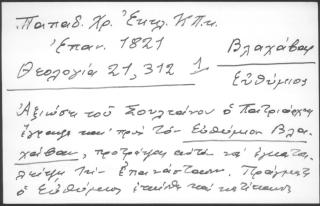 Παπαδ. Χρ. Ἐκκλ. Κ/Π.
Ἐπαν. 1821
Βλαχάβας
Θεολογία 21, 312 1
Εὐθύμιος
Ἀξιώσει τοῦ Σουλτάνου ὁ Πατριάρχης
ἔγραψε καὶ πρὸς τὸν Εὐθύμιον Βλα-
χάβαν, προτρέψας αὐτὸν νὰ ἐγκατα-
λείψῃ τὴν Ἐπανάστασιν. Πράγματι
ὁ Εὐθύμιος καὶ